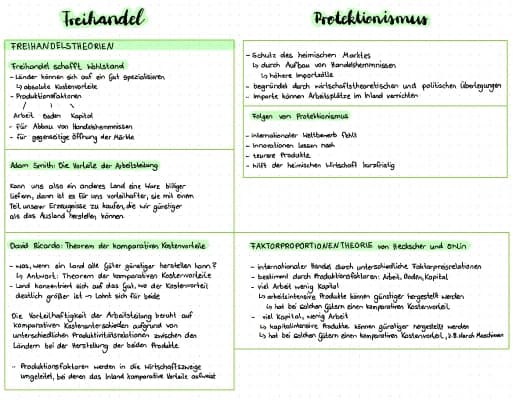 Freihandel
FREIHANDELSTHEORIEN
Freihandel schafft Wohlstand
- Länder können sich auf ein Gut spezialisieren
↳ absolute Kostenvorteile
- Produktionsfaktoren
Arbeit Boden Kapital
- für Abbau von Handelshemmnissen
- für gegenseitige Öffnung der Märkte
Adam Smith: Die Vorteile der Arbeitsteilung
Kann uns also ein anderes Land eine Ware billiger
liefern, dann ist es für uns vorteilhafter, sie mit einem
Teil unserer Erzeugnisse zu kaufen, die wir günstiger
als das Ausland herstellen können.
David Ricardo: Theorem der komparativen Kostenvorteile
- was, wenn ein Land alle Güter günstiger herstellen kann?
↳ Antwort: Theorem der komparativen Kostenvorteile
- Land konzentriert sich auf das Gut, wo der Kostenvorteil
deutlich größer ist → lohnt sich für beide
Die Vorteilhaftigkeit der Arbeitsteilung beruht auf
komparativen Kostenunterschieden aufgrund von
unterschiedlichen Produktivitätsrelationen zwischen den
Ländern bei der Herstellung der beiden Produkte.
- Produktionsfaktoren werden in die Wirtschaftszweige
umgeleitet, bei denen das Inland komparative Vorteile aufweist
Protektionismus
- Schutz des heimischen Marktes
↳ durch Aufbau von Handelshemmnissen
↳ höhere Importzölle
- begründet durch wirtschaftstheoretischen und politischen Überlegungen
- Importe können Arbeitsplätze im Inland vernichten
Folgen von Protektionismus
- internationaler Wettbewerb fehlt
- Innovationen lassen nach
- teurere Produkte
- hilft der heimischen Wirtschaft kurzfristig
FAKTORPROPORTIONENTHEORIE von Heckscher und Ohlin
- internationaler Handel durch unterschiedliche Faktorpreisrelationen
- bestimmt durch Produktionsfaktoren: Arbeit, Boden, Kapital
- viel Arbeit wenig Kapital
↳ arbeitsintensive Produkte können günstiger hergestellt werden
↳ hat bei solchen Gütern einen komparativen Kostenvorteil
- viel Kapital, wenig Arbeit
↳ kapitalintensive Produkte können günstiger hergestellt werden
↳ hat bei solchen Gütern einen komparativen Kostenvorteil, z.B. durch Maschinen